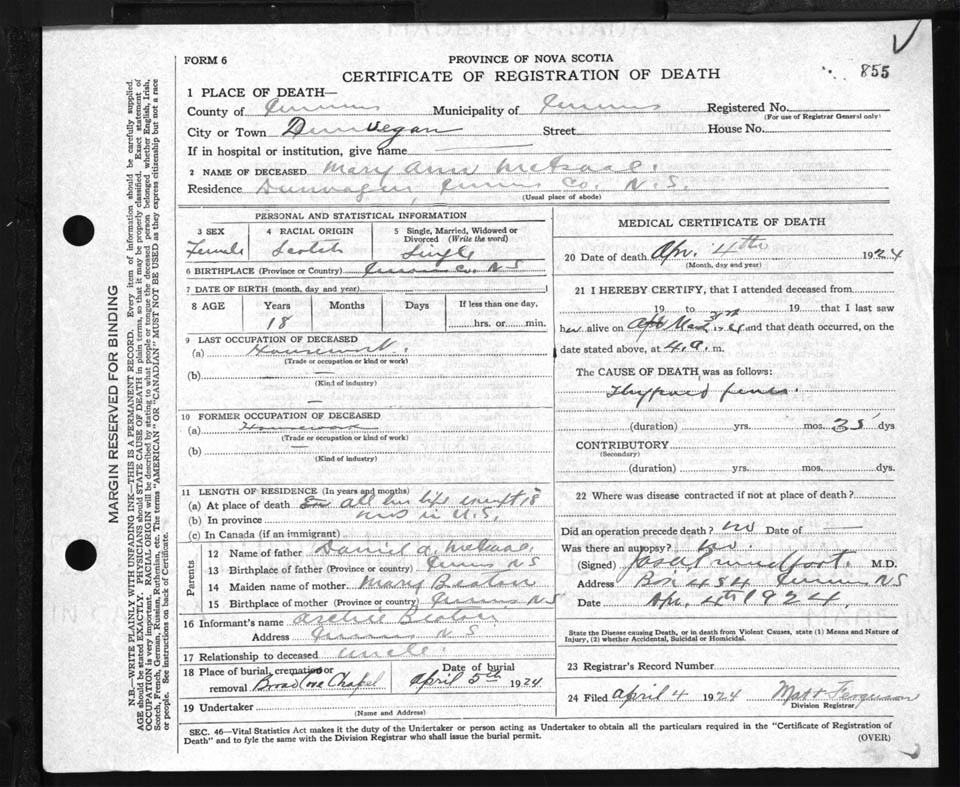 855
FORM 6
PROVINCE OF NOVA SCOTIA
CERTIFICATE OF REGISTRATION OF DEATH
MARGIN RESERVED FOR BINDING
N.B.—WRITE PLAINLY WITH UNFADING INK—THIS IS A PERMANENT RECORD. Every item of information should be carefully supplied.
AGE should be stated EXACTLY. PHYSICIANS should STATE CAUSE OF DEATH in plain terms, so that it may be properly classified. Exact statement of
OCCUPATION is very important. RACIAL ORIGIN will be described by stating to what people or tongue the deceased person belonged whether English, Irish,
Scotch, French, German, Russian, Ruthenian, etc. The terms "AMERICAN" OR "CANADIAN" MUST NOT BE USED as they express citizenship but not a race
or people. See instructions on back of Certificate.
1 PLACE OF DEATH—
County of Municipality of Registered No.
(For use of Registrar General only)
City or Town Dunvegan Street House No.
If in hospital or institution, give name
2 NAME OF DECEASED Mary Ann McIsaac.
Residence Dunvegan, Co. N.S.
(Usual place of abode)
PERSONAL AND STATISTICAL INFORMATION
3 SEX 4 RACIAL ORIGIN 5 Single, Married, Widowed or
Divorced (Write the word)
Female Scotch Single
6 BIRTHPLACE (Province or Country) Co. NS
7 DATE OF BIRTH (month, day and year)
8 AGE Years Months Days If less than one day,
18 hrs. or min.
9 LAST OCCUPATION OF DECEASED
(a) Housework.
(Trade or occupation or kind or work)
(b)
(Kind of industry)
10 FORMER OCCUPATION OF DECEASED
(a) Housework
(Trade or occupation or kind of work)
(b)
(Kind of industry)
11 LENGTH OF RESIDENCE (In years and months)
(a) At place of death all her life except 18
(b) In province in U.S.
(c) In Canada (if an immigrant)
Parents
12 Name of father Daniel A. McIsaac.
13 Birthplace of father (Province or country) NS
14 Maiden name of mother Mary Beaton
15 Birthplace of mother (Province or country) NS
16 Informant's name Archie Beaton
Address N.S
17 Relationship to deceased uncle.
18 Place of burial, cremation or Date of burial
removal Broad Cove Chapel April 5th 1924
19 Undertaker
(Name and Address)
MEDICAL CERTIFICATE OF DEATH
20 Date of death Apr. 4th 1924
(Month, day and year)
21 I HEREBY CERTIFY, that I attended deceased from
19 to 19 that I last saw
her alive on Mar 31st and that death occurred, on the
date stated above, at 4 a. m.
The CAUSE OF DEATH was as follows:
Typhoid fever.
(duration) yrs. mos. 35 dys
CONTRIBUTORY
(Secondary)
(duration) yrs. mos. dys.
22 Where was disease contracted if not at place of death?
Did an operation precede death? no Date of
Was there an autopsy? no.
(Signed) M.D.
Address Box 484 NS
Date Apr. 4th 1924.
State the Disease causing Death, or in death from Violent Causes, state (1) Means and Nature of
Injury, (2) whether Accidental, Suicidal or Homicidal.
23 Registrar's Record Number
24 Filed April 4 1924 Ferguson
Division Registrar
SEC. 46—Vital Statistics Act makes it the duty of the Undertaker or person acting as Undertaker to obtain all the particulars required in the "Certificate of Registration of
Death" and to fyle the same with the Division Registrar who shall issue the burial permit.
(OVER)